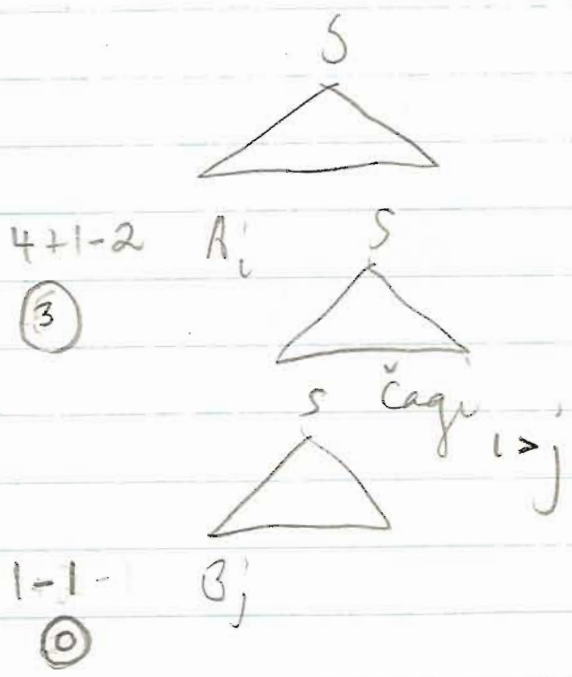 S
4+1-2 Ai S
3
s čagi i > j
1-1- Bj
0